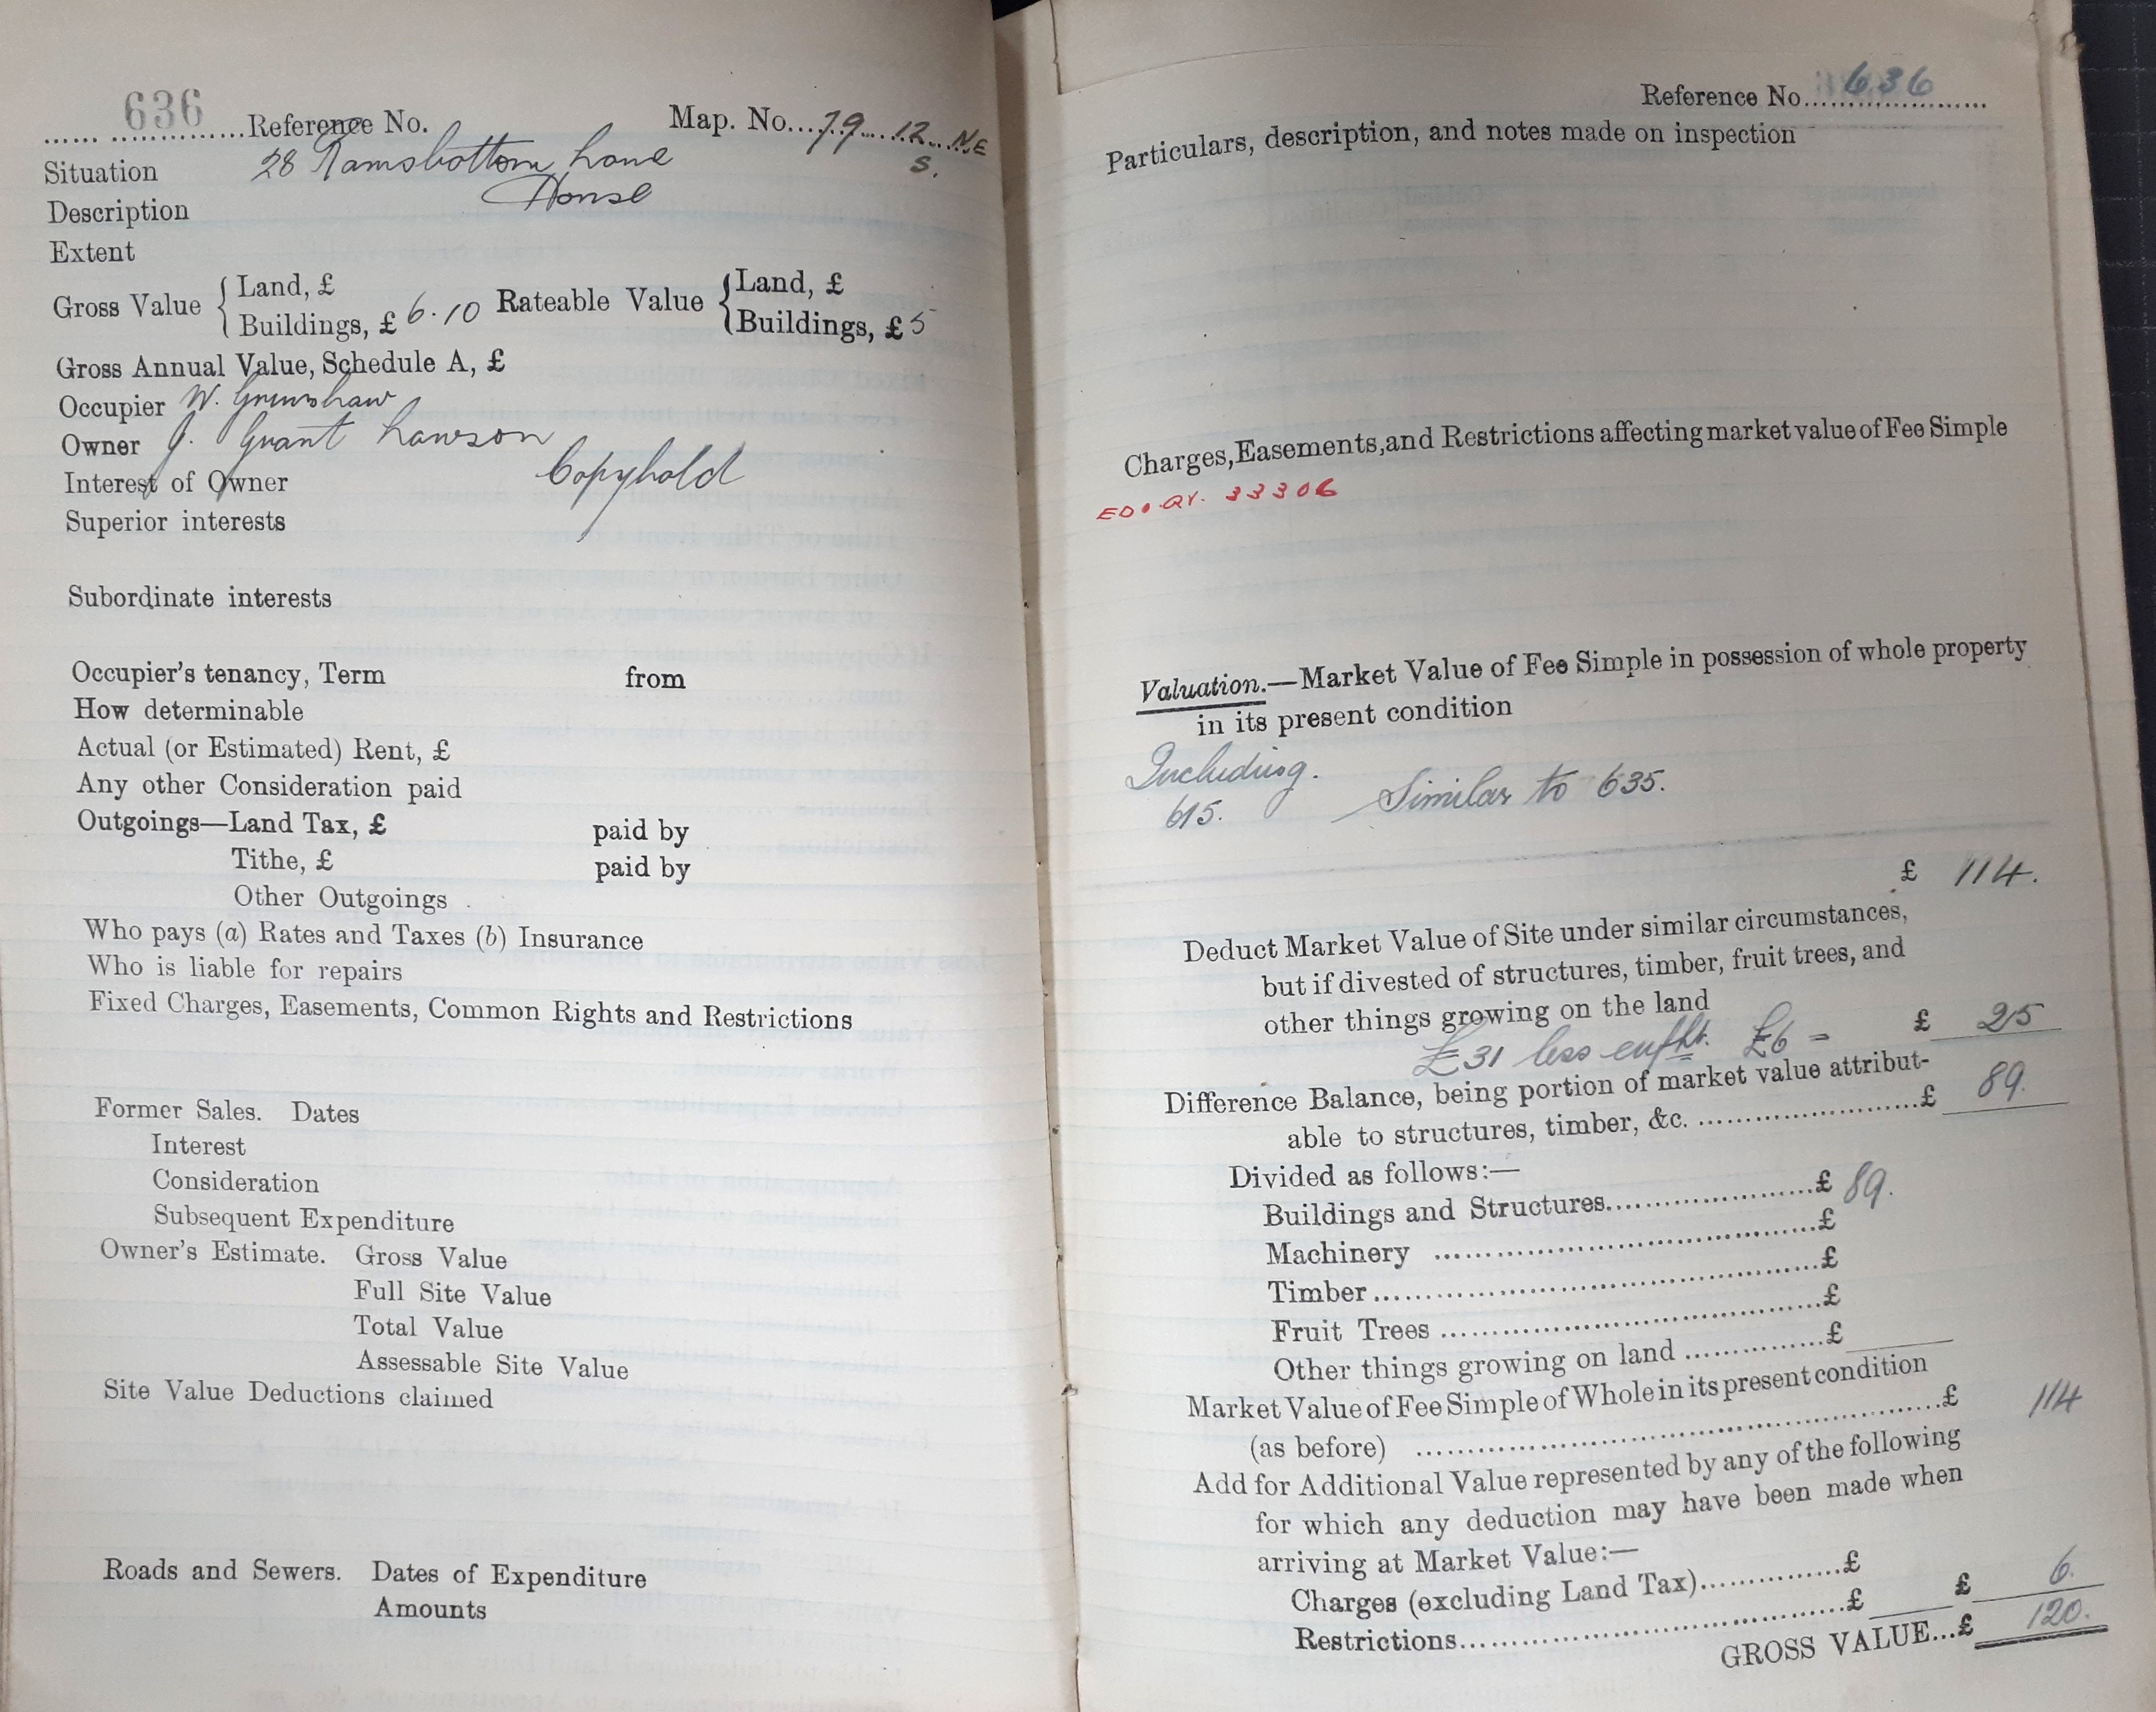 636 Reference No. Map. No. 79 12 NE
S.
Situation 28 Ramsbottom Lane
Description House
Extent
Gross Value { Land, £ Rateable Value { Land, £
Buildings, £ 6.10 Buildings, £ 5
Gross Annual Value, Schedule A, £
Occupier W. Grimshaw
Owner J. Grant Lawson
Interest of Owner Copyhold
Superior interests
Subordinate interests
Occupier's tenancy, Term from
How determinable
Actual (or Estimated) Rent, £
Any other Consideration paid
Outgoings—Land Tax, £ paid by
Tithe, £ paid by
Other Outgoings
Who pays (a) Rates and Taxes (b) Insurance
Who is liable for repairs
Fixed Charges, Easements, Common Rights and Restrictions
Former Sales. Dates
Interest
Consideration
Subsequent Expenditure
Owner's Estimate. Gross Value
Full Site Value
Total Value
Assessable Site Value
Site Value Deductions claimed
Roads and Sewers. Dates of Expenditure
Amounts
Reference No. 636
Particulars, description, and notes made on inspection
Charges, Easements, and Restrictions affecting market value of Fee Simple
ED. QY. 33306
Valuation.—Market Value of Fee Simple in possession of whole property
in its present condition
Including. Similar to 635.
615.
£ 114.
Deduct Market Value of Site under similar circumstances,
but if divested of structures, timber, fruit trees, and
other things growing on the land £ 25
£31 less enfht. £6 =
Difference Balance, being portion of market value attribut-
able to structures, timber, &c. £ 89.
Divided as follows:—
Buildings and Structures £ 89.
Machinery £
Timber £
Fruit Trees £
Other things growing on land £
Market Value of Fee Simple of Whole in its present condition
(as before) £ 114
Add for Additional Value represented by any of the following
for which any deduction may have been made when
arriving at Market Value:—
Charges (excluding Land Tax) £
Restrictions £ £ 6.
GROSS VALUE...£ 120.